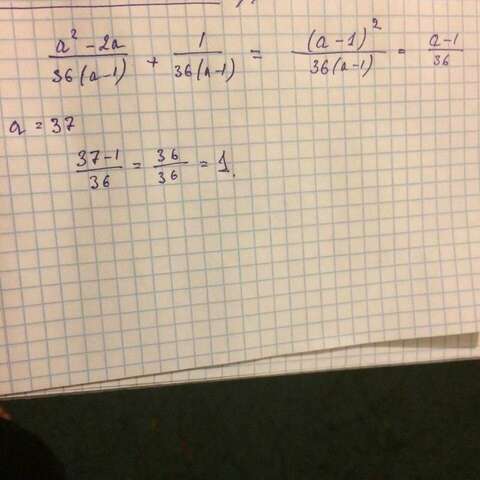 a² - 2a / 36(a-1) + 1 / 36(a-1) = (a-1)² / 36(a-1) = a-1 / 36
a = 37
37-1 / 36 = 36 / 36 = 1.